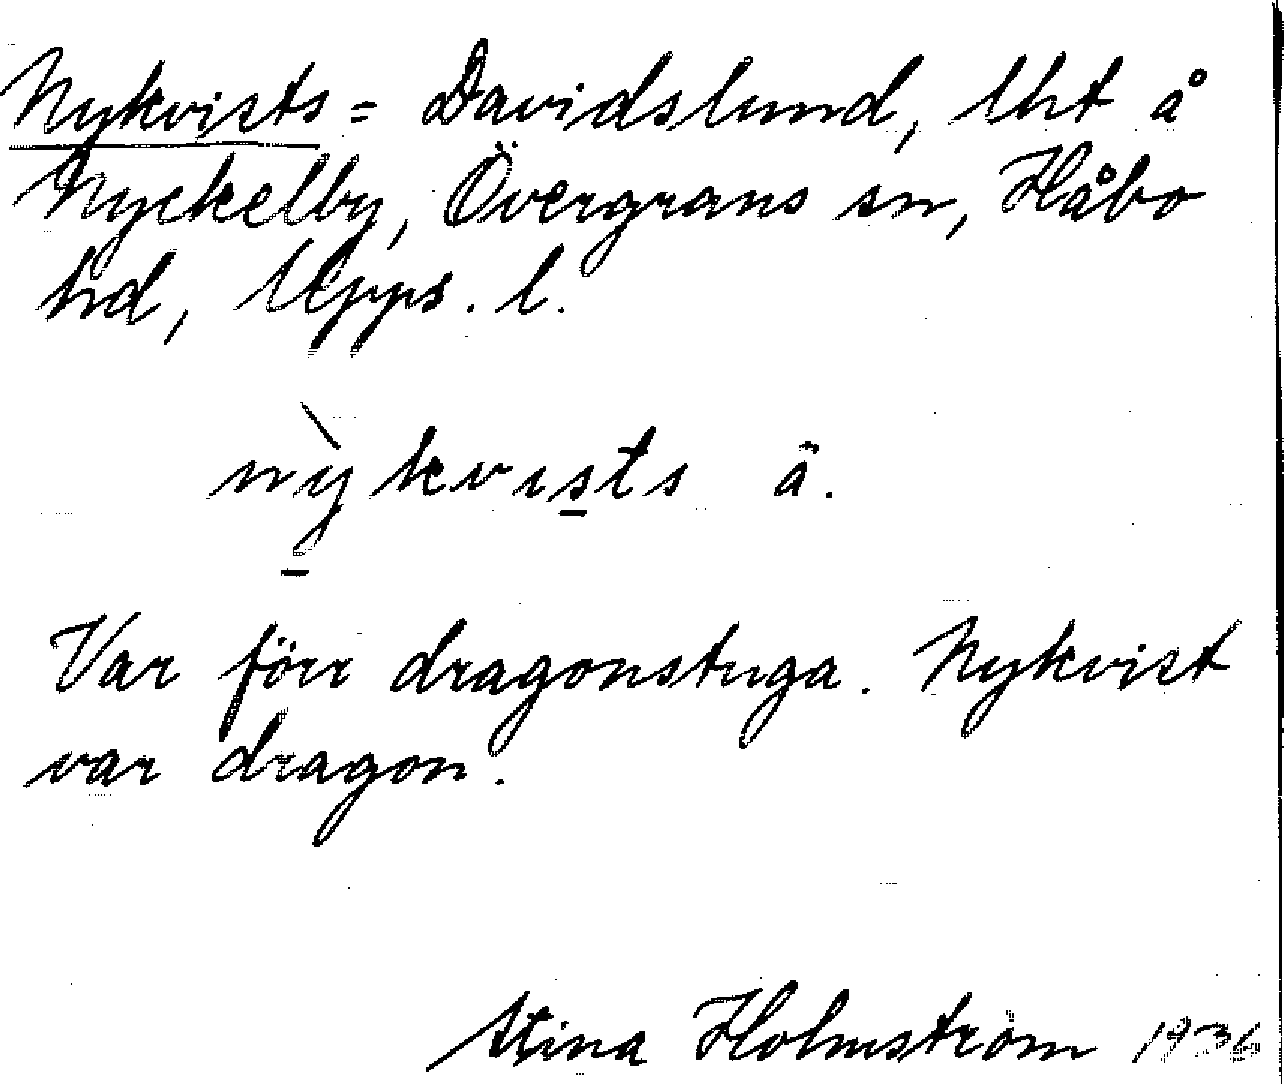 Nykvists = Davidslund, lht å
Nyckelby, Övergrans sn, Håbo
hd, Upps. l.
nỳkvists ä.
Var förr dragonstuga. Nykvist
var dragon.
Stina Holmström 1936